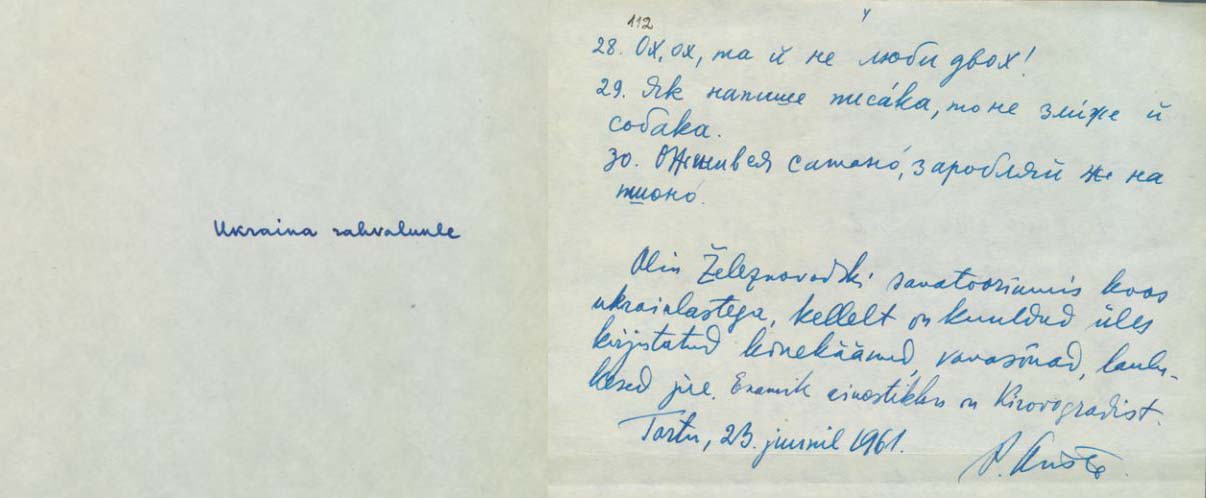 Ukraina rahvaluule
112
28. Ох, ох, та й не люби двох!
29. Як напише писáка, то не злíже й
собака.
30. Оженився сатоно́, заробляй же на
пшоно́.
Olin Železnovodski sanatooriumis koos
ukrainlastega, kellelt on kuuldud üles
kirjutatud kõnekäänud, vanasõnad, laulu-
kesed jne. Enamik ainestikku on Kirovogradist.
Tartu, 23. juunil 1961.